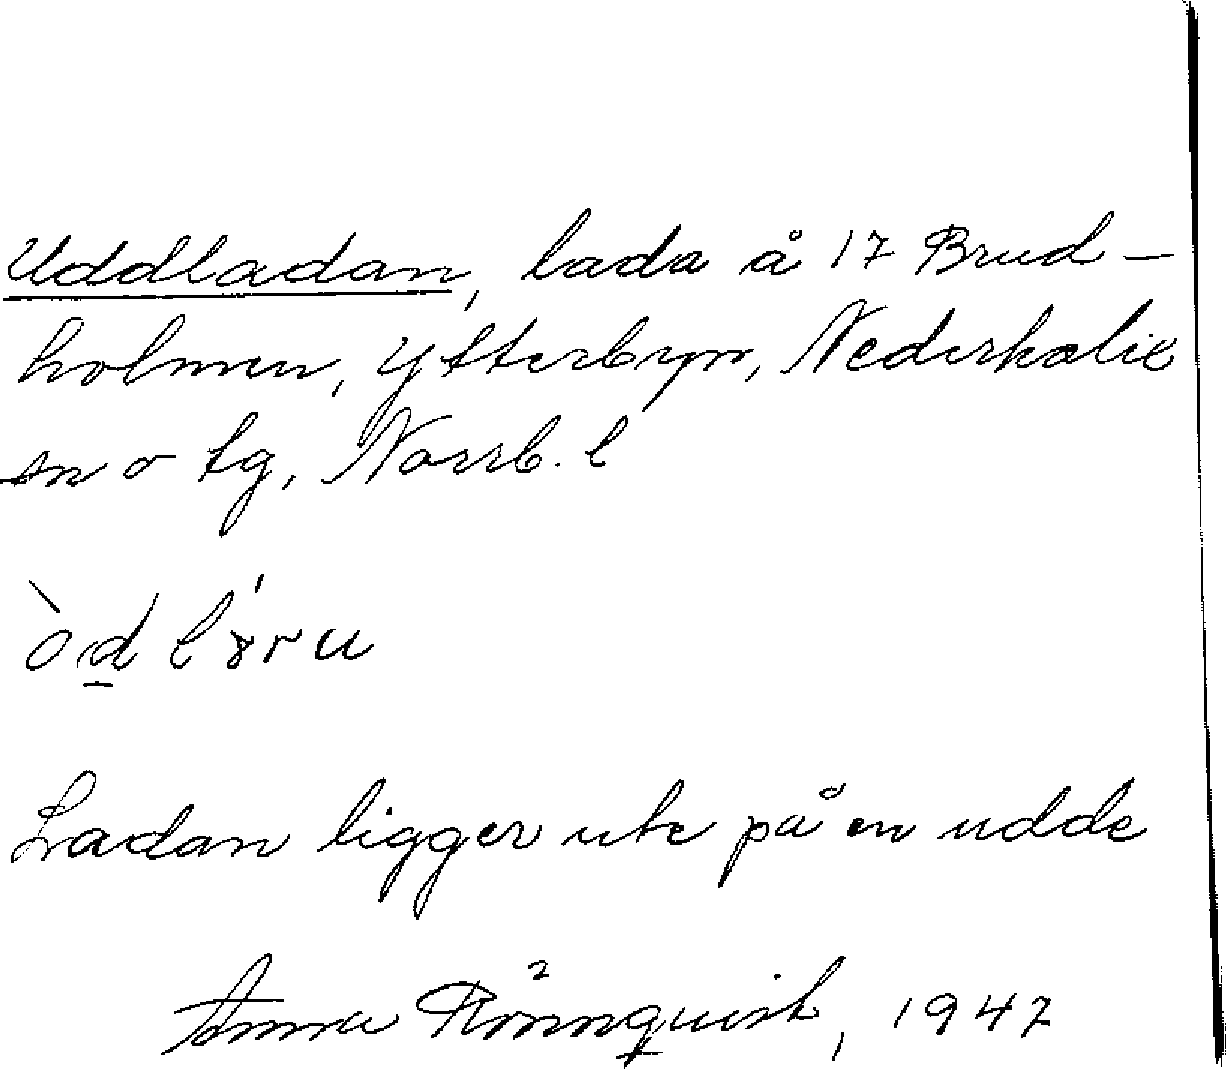 Uddladan, lada å 17 Brud-
holmen, Ytterbyn, Nederkalix
sn o tg, Norrb. l
Ladan ligger ute på en udde
Anna Rönnquist, 1947